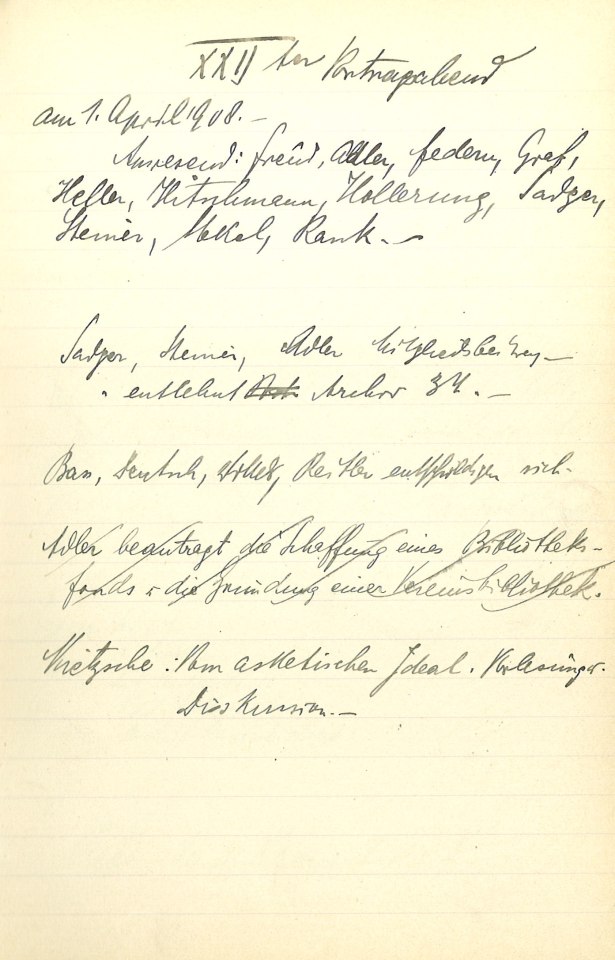 XXIIter Vortragabend
am 1. April 1908. —
Anwesend: Freud, Adler, Federn, Graf,
Heller, Hitschmann, Hollerung, Sadger,
Steiner, Stekel, Rank. —
Sadger, Steiner, Adler Mitgliedsbeitrag —
" entlehnt Archiv 34. —
Bass, Deutsch, Reitler entschuldigen sich.
Adler beantragt die Schaffung eines Bibliotheks-
fonds u die Gründung einer Vereinsbibliothek.
Nietzsche: Vom asketischen Ideal. Vorlesung u.
Diskussion. —